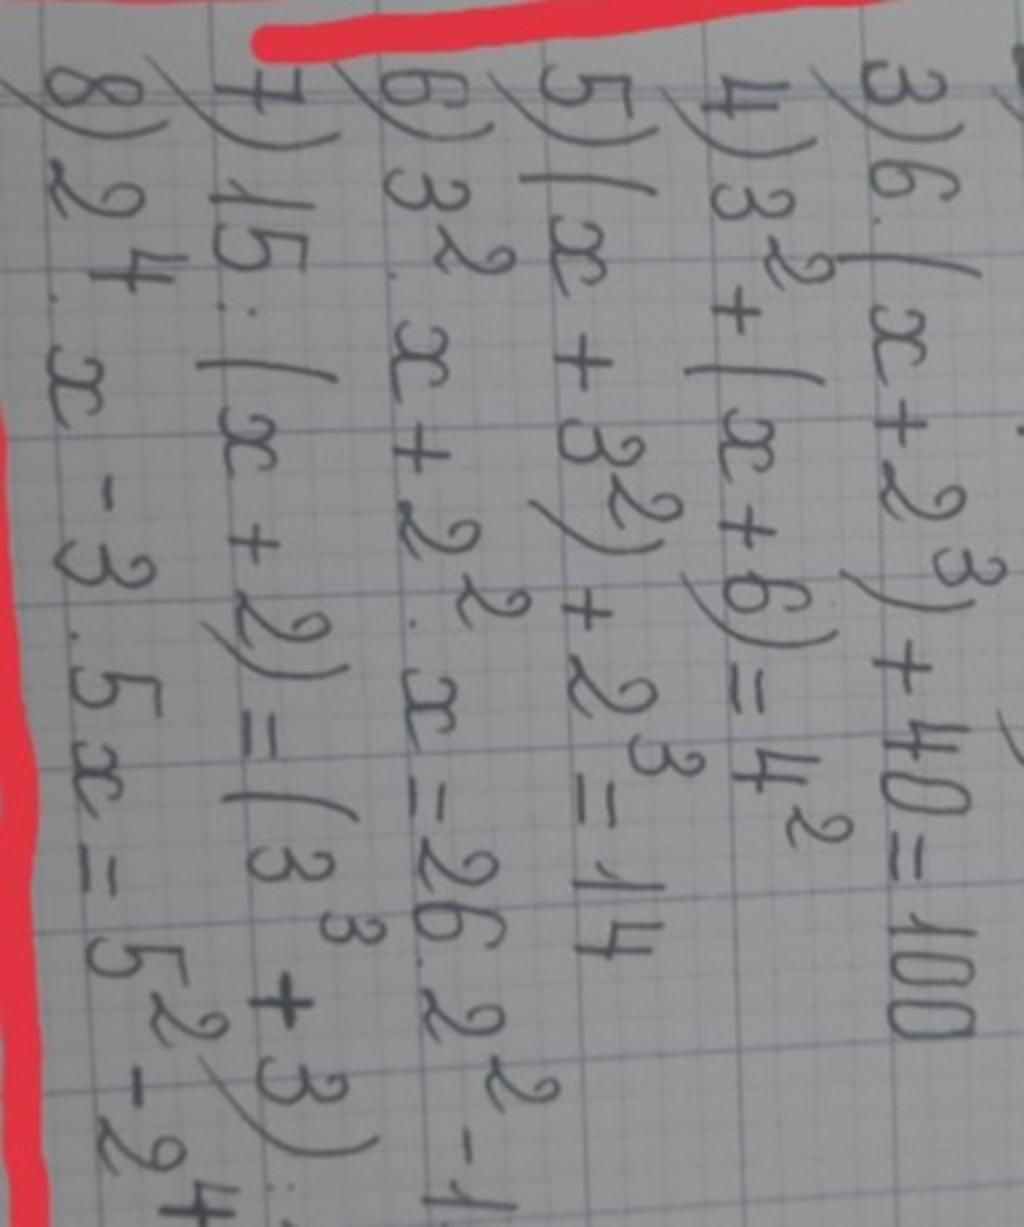 3) 6 · (x + 2³) + 40 = 100
4) 3² + (x + 6) = 4²
5) (x + 3²) + 2³ = 14
6) 3² · x + 2² · x = 26 · 2² - 1
7) 15 : (x + 2) = (3³ + 3) :
8) 2⁴ · x - 3 · 5x = 5² - 2⁴